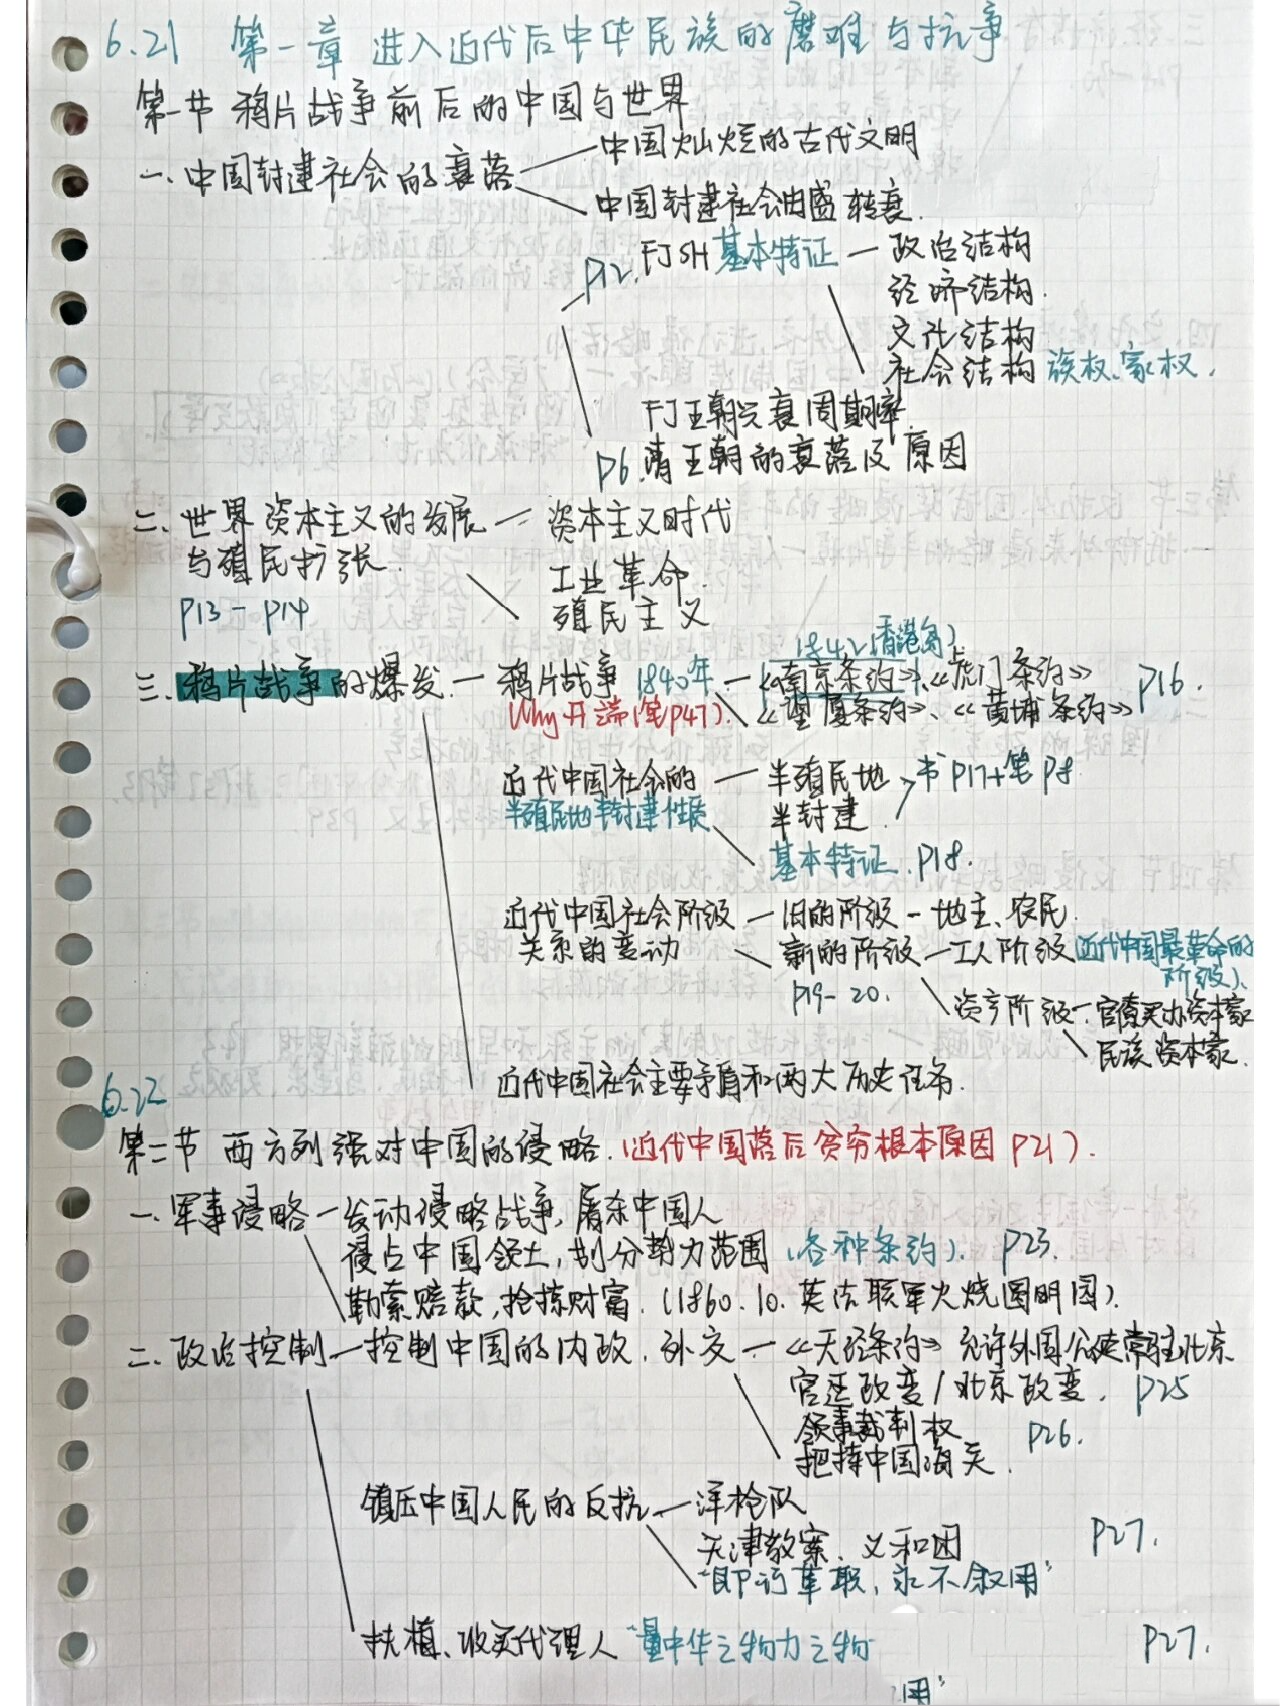 6.21 第一章 进入近代后中华民族的磨难与抗争
第一节 鸦片战争前后的中国与世界
一、中国封建社会的衰落 中国灿烂的古代文明
中国封建社会由盛转衰.
P12. FJSH 基本特证 — 政治结构
经济结构.
文化结构
社会结构 族权、家权.
FJ王朝兴衰周期率
P6. 清王朝的衰落及原因
二、世界资本主义的发展 — 资本主义时代
与殖民扩张. 工业革命.
P13-P14 殖民主义
1842(香港岛)
三、鸦片战争的爆发 — 鸦片战争 1840年 — 《南京条约》、《虎门条约》 P16.
Why开端(笔P47). 《望厦条约》、《黄埔条约》
近代中国社会的 — 半殖民地 书P17+笔P8
半殖民地半封建性质 半封建
基本特证. P18.
近代中国社会阶级 — 旧的阶级 — 地主、农民.
关系的变动 新的阶级 — 工人阶级 (近代中国最革命的
阶级)、
P19-20. 资产阶级 — 官僚买办资本家
民族资本家.
近代中国社会主要矛盾和两大历史任务.
6.22
第二节 西方列强对中国的侵略. (近代中国落后贫穷根本原因 P21).
一、军事侵略 — 发动侵略战争, 屠杀中国人
侵占中国领土, 划分势力范围 (各种条约). P23.
勒索赔款, 抢掠财富. (1860.10. 英法联军火烧圆明园).
二、政治控制 — 控制中国的内政、外交 — 《天津条约》允许外国公使常驻北京
宫廷政变/北京政变. P25
领事裁判权 P26.
把持中国海关.
镇压中国人民的反抗 — 洋枪队
天津教案、义和团 P27.
“即行革职, 永不叙用”
扶植、收买代理人 “量中华之物力之物 P27.
用”